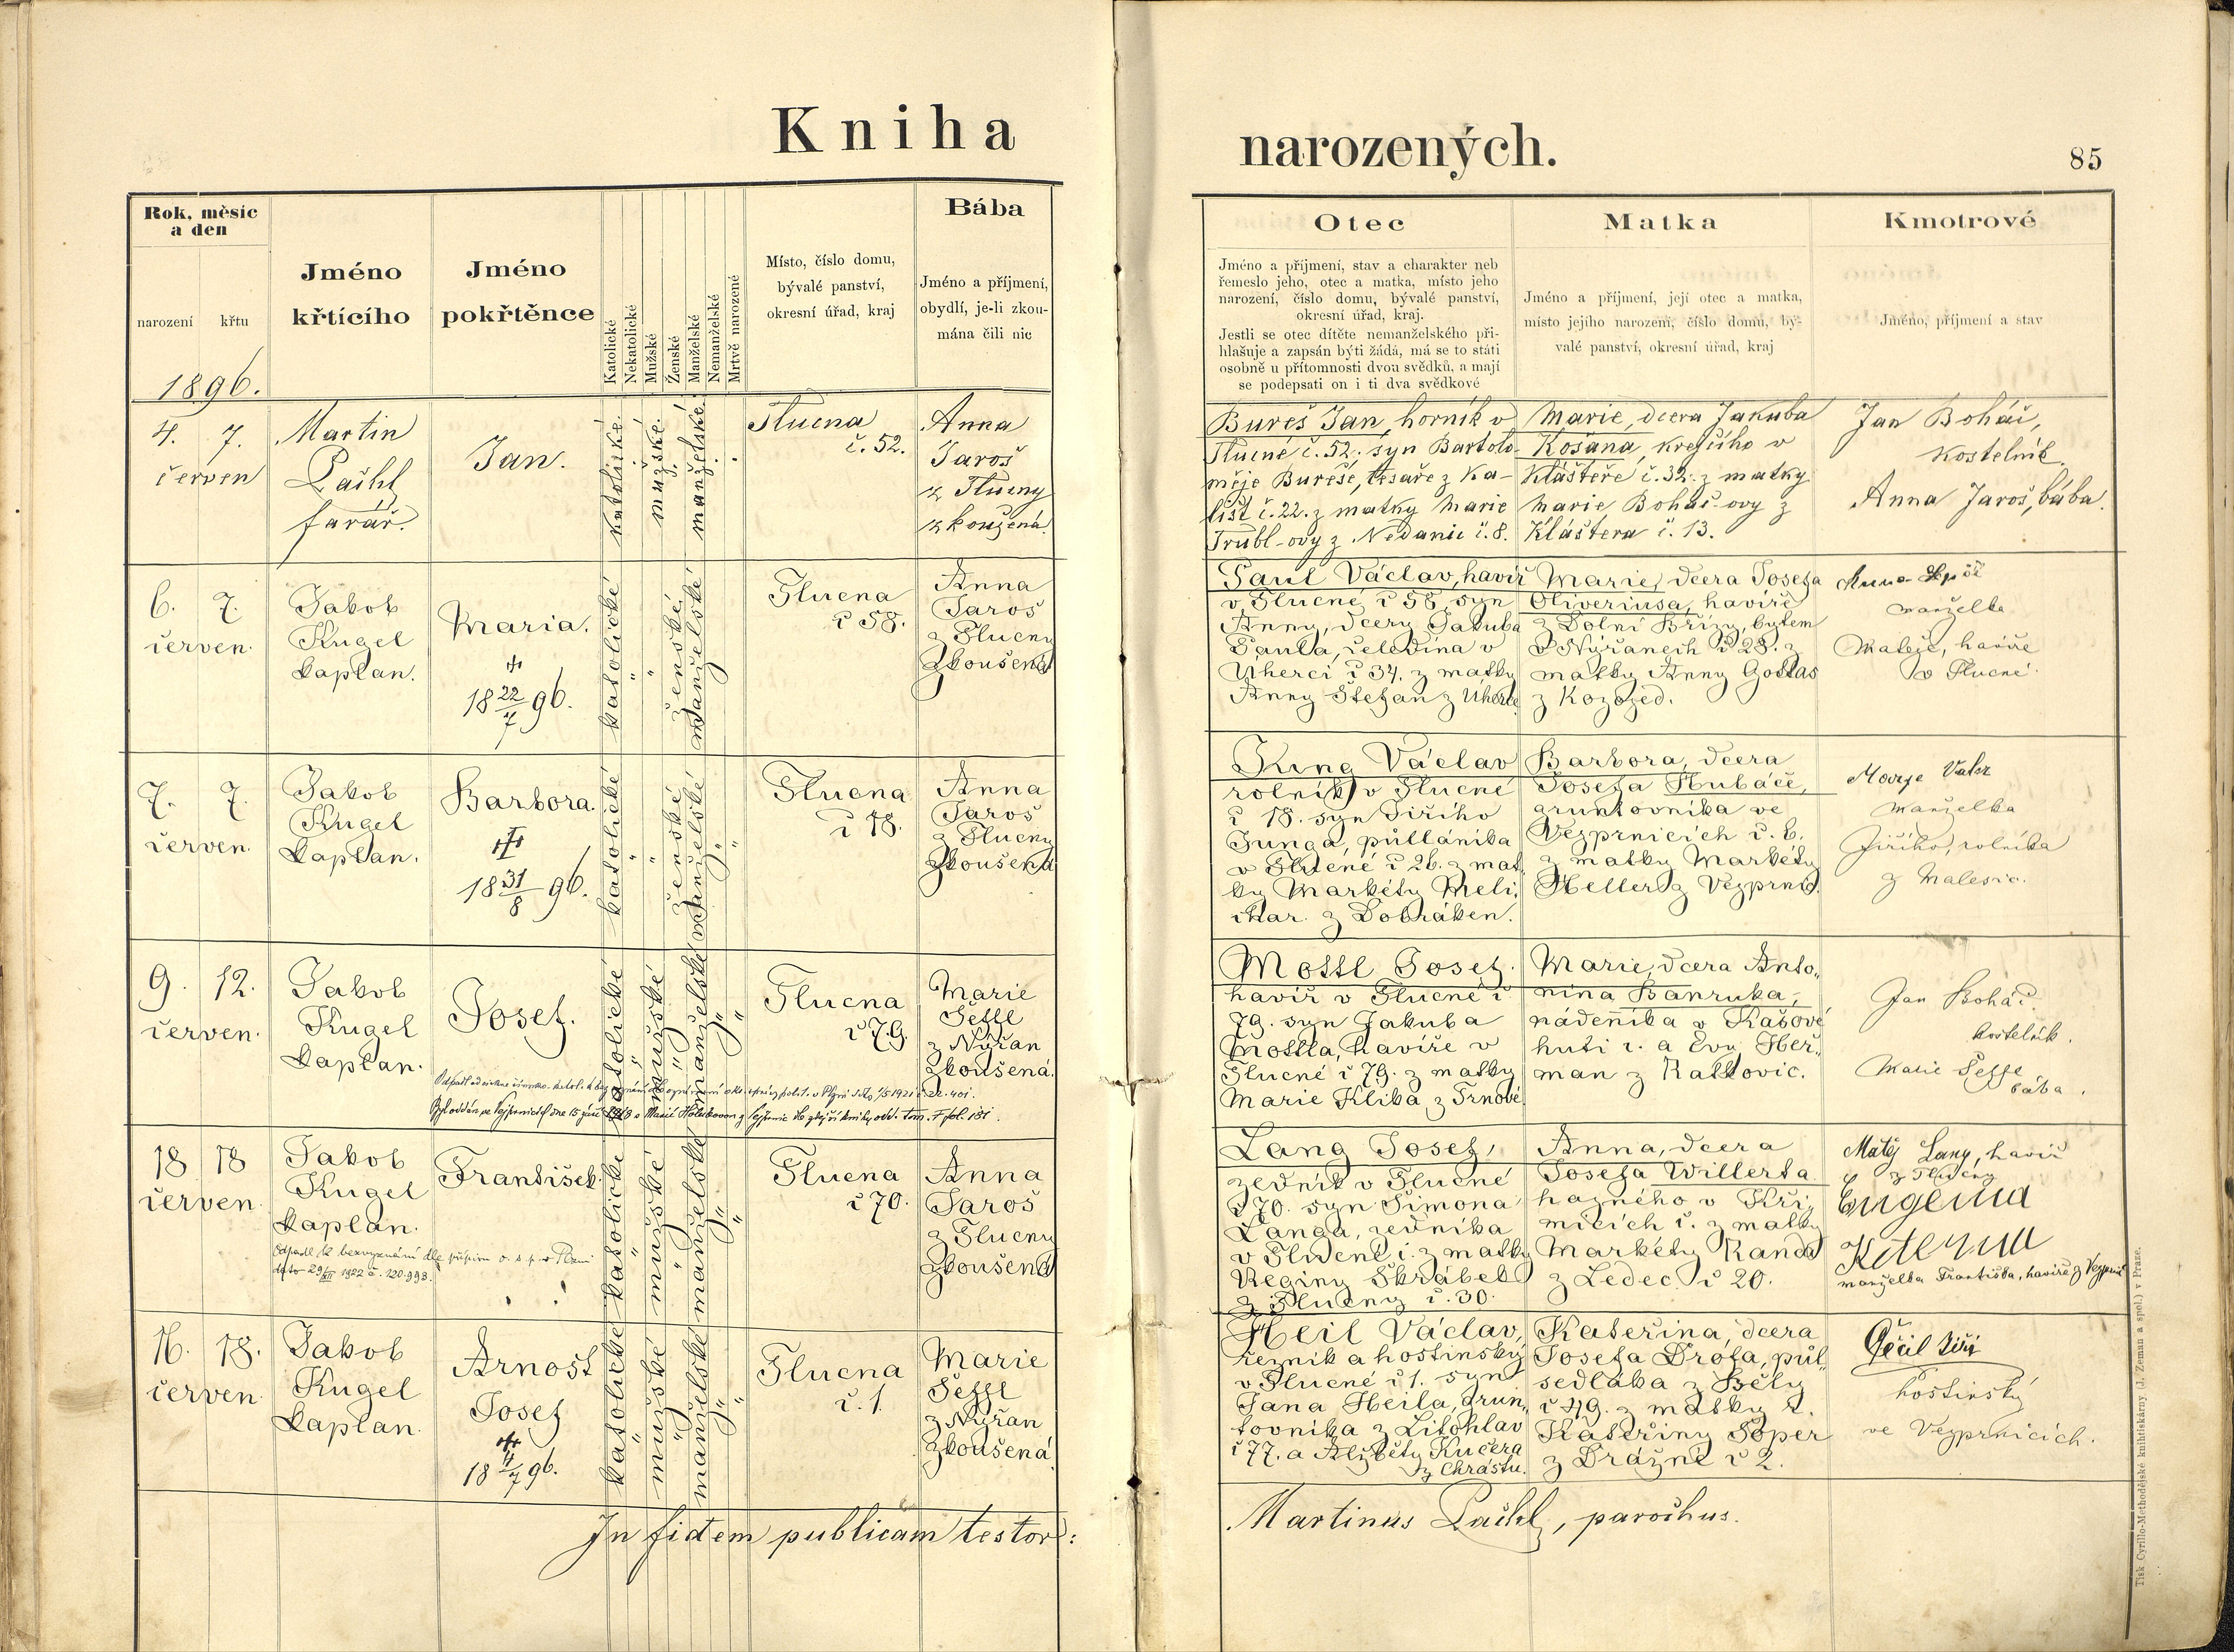 Kniha
narozených.
85
Rok, měsíc
a den
narození křtu
1896.
Jméno
křtícího
Jméno
pokřtěnce
Katolické
Nekatolické
Mužské
Ženské
Manželské
Nemanželské
Mrtvě narozené
Místo, číslo domu,
bývalé panství,
okresní úřad, kraj
Bába
Jméno a příjmení,
obydlí, je-li zkou-
mána čili nic
Otec
Jméno a příjmení, stav a charakter neb
řemeslo jeho, otec a matka, místo jeho
narození, číslo domu, bývalé panství,
okresní úřad, kraj.
Jestli se otec dítěte nemanželského při-
hlašuje a zapsán býti žádá, má se to státi
osobně u přítomnosti dvou svědků, a mají
se podepsati on i ti dva svědkové
Matka
Jméno a příjmení, její otec a matka,
místo jejího narození, číslo domu, bý-
valé panství, okresní úřad, kraj
Kmotrové
Jméno, příjmení a stav
4. 7.
červen
Martin
Pačhl
farář.
Jan.
katolické
mužské
manželské
Tlucna
č. 52.
Anna
Jaroš
z Tlucny
zkoušená
Bureš Jan, horník v
Tlucné č. 52. syn Bartolo-
měje Bureše, tesaře z Ka-
lišť č. 22. z matky Marie
Trubl-ovy z Nedanic č. 8.
Marie, dcera Jakuba
Košana, krejčího v
Klášteře č. 32. z matky
Marie Boháč-ovy z
Kláštera č. 13.
Jan Boháč,
kostelník.
Anna Jaroš, bába.
6. 7.
červen.
Jakob
Kugel
kaplan.
Maria.
18 22/7 96.
katolické
ženské
manželské
Tlucna
č 58.
Anna
Jaroš
z Tlucny
zkoušená
Paul Václav, havíř
v Tlucné č 58, syn
Anny, dcery Jakuba
Paula, čeledína v
Úherci č 34. z matky
Anny Štefan z Úherce
Marie, dcera Josefa
Oliveriusa, havíře
z Dolní Břízy, bytem
v Nýřanech č 28. z
matky Anny
z Kozojed.
Anna
manželka
Matěje, havíře
v Tlucné.
7. 7.
červen.
Jakob
Kugel
kaplan.
Barbora.
18 31/8 96.
katolické
ženské
manželské
Tlucna
č 18.
Anna
Jaroš
z Tlucny
zkoušená
Jung Václav
rolník v Tlucné
č 18. syn Jiřího
Junga, půllánika
v Tlucné č 26. z mat
ky Markéty Meli
char z Dobřáken.
Barbora, dcera
Josefa Hubáčě,
gruntovníka ve
Vejprnicích č. 6.
z matky Markéty
Heller z Vejprnic.
manželka
Jiřího, rolníka
z Malesic.
9. 12.
červen.
Jakob
Kugel
kaplan.
Josef.
katolické
mužské
manželské
Tlucna
č 79.
Marie
Šessl
z Nýřan
zkoušená.
Mottl Josef.
havíř v Tlucné č
79. syn Jakuba
Mottla, havíře v
Tlucné č 79. z matky
Marie Klika z Trnové
Marie, dcera Anto„
nína
nádenníka v Kašově
huti č. a Evy Heř„
man z Ratkovic.
Jan Boháč.
kostelník.
Marie Šessl
bába.
18 18
červen.
Jakob
Kugel
kaplan.
František.
Odpadl k bezvyznání dle přípisu o. s. p. v Plzni
29/XII 1922 č. 120.993.
katolické
mužské
manželské
Tlucna
č 70.
Anna
Jaroš
z Tlucny
zkoušená
Lang Josef,
zedník v Tlucné
č 70. syn Šimona
Langa, zedníka
v Tlucné č. z matky
Reginy Škrábek
z Tlucny č. 30.
Anna, dcera
Josefa Willerta
hajného v Kři„
micích č. z matky
Markéty Randa
z Ledec č 20.
Matěj Lang, havíř
z Tlucny
manželka Františka, havíře z Vejprnic
16. 18.
červen.
Jakob
Kugel
kaplan.
Arnošt
Josef
18 4/7 96.
katolické
mužské
manželské
Tlucna
č. 1.
Marie
Šessl
z Nýřan
zkoušená.
Heil Václav,
řezník a hostinský
v Tlucné č 1. syn
Jana Heila, grun„
tovníka z Litohlav
č 77. a Alžběty Kučera
z Chrástu.
Kateřina, dcera
Josefa Drófa, půl„
sedláka z Bělý
č 49. z matky
Kateřiny Soper
z Drážně č 2.
Jiří
hostinský
ve Vejprnicích.
In fidem publicam testor:
Martinus Pačhl, parochus.
Tisk Cyrillo-Methodějské knihtiskárny (J. Zeman a spol.) v Praze.